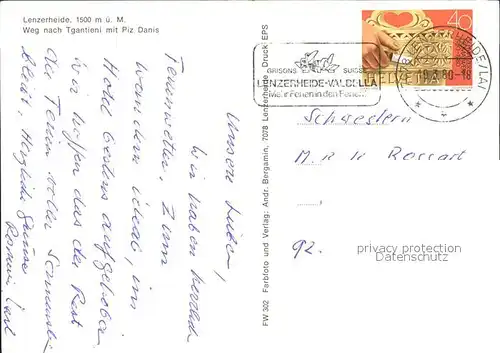 Lenzerheide, 1500 m ü. M.
Weg nach Tgantieni mit Piz Danis
Unsere Lieben,
wir haben
Ferienwetter, zum
wandern ideal, im
Hotel bestens aufgehoben
wir hoffen das der Rest
der Ferien voller Sonnenschein
bleibt. Herzliche Grüsse
FW 302 Farbfoto und Verlag: Andr. Bergamin, 7078 Lenzerheide, Druck EPS
GRISONS SUISSE
LENZERHEIDE-VALBELLA
Mehr Ferien in den Ferien
40
HELVETIA
LENZERHEIDE/LAI
80-18
Schwestern
M. R. R. Rossart
92.
privacy protection
Datenschutz